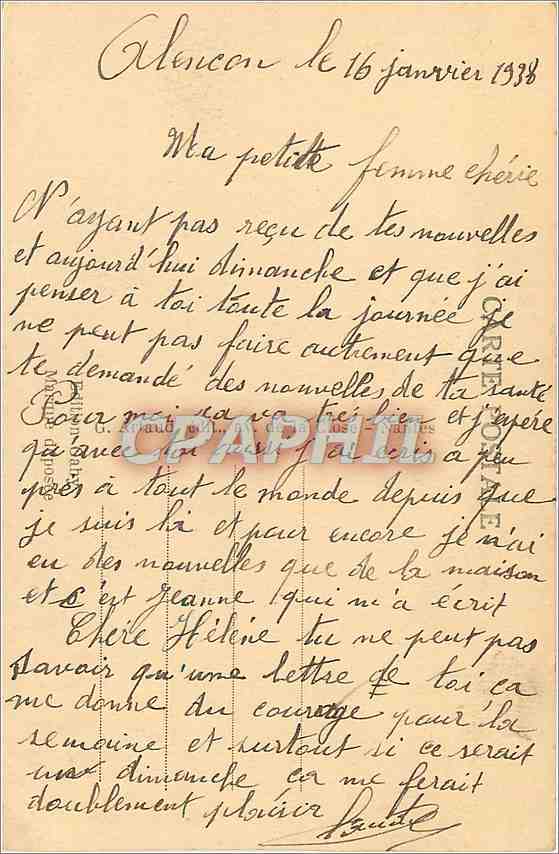 Alencon le 16 janvier 1938
Ma petite femme chérie
N'ayant pas reçu de tes nouvelles
et aujourd'hui dimanche et que j'ai
penser à toi toute la journée je
ne peut pas faire autrement que
te demandé des nouvelles de ta santé
Pour moi sa va très bien et j'épère
qu'avec toi aussi j'ai écris a peu
près à tout le monde depuis que
je suis là et pour encore je n'ai
eu des nouvelles que de la maison
et c'est Jeanne qui m'a écrit
Chère Hélène tu ne peut pas
savoir qu'une lettre de toi ça
me donne du courage pour la
semaine et surtout si ce serait
un dimanche ça me ferait
doublement plaisir
CARTE POSTALE
G. Artaud, édit., av. de la Close - Nantes
Marque déposée
CPARPHIL